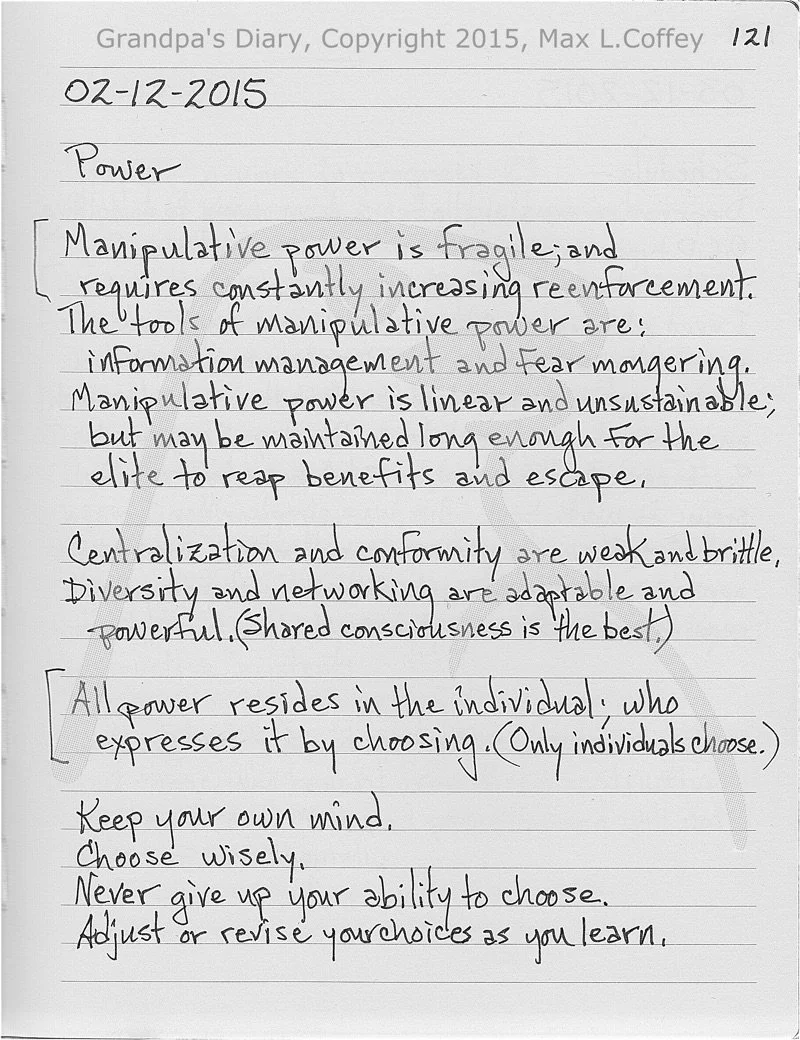 Grandpa's Diary, Copyright 2015, Max L.Coffey 121
02-12-2015
Power
Manipulative power is fragile; and
requires constantly increasing reenforcement.
The tools of manipulative power are:
information management and fear mongering.
Manipulative power is linear and unsustainable;
but may be maintained long enough for the
elite to reap benefits and escape.
Centralization and conformity are weak and brittle.
Diversity and networking are adaptable and
powerful. (Shared consciousness is the best.)
All power resides in the individual; who
expresses it by choosing. (Only individuals choose.)
Keep your own mind.
Choose wisely.
Never give up your ability to choose.
Adjust or revise your choices as you learn.